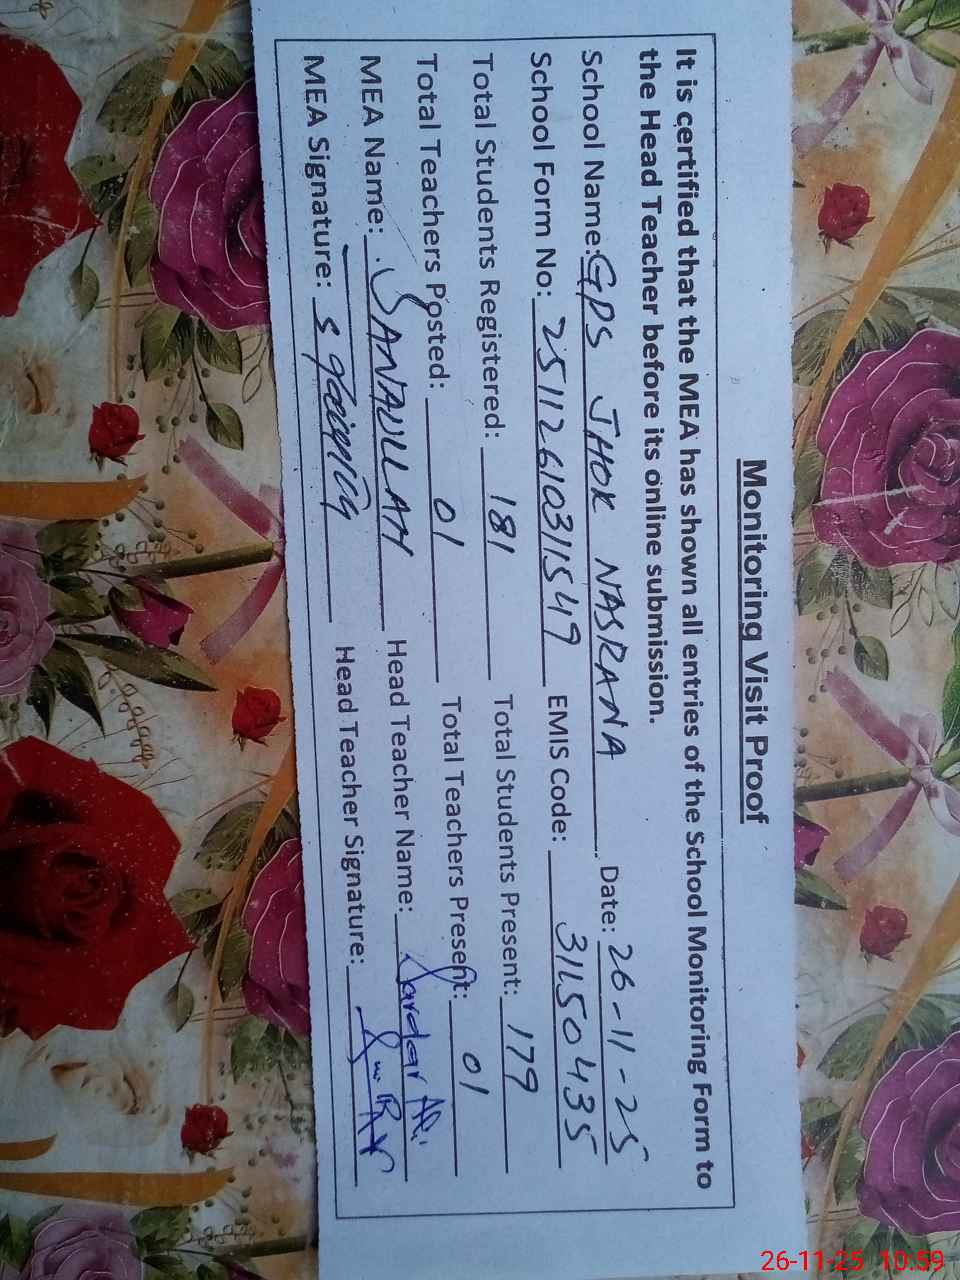 Monitoring Visit Proof
It is certified that the MEA has shown all entries of the School Monitoring Form to
the Head Teacher before its online submission.
School Name: GPS JHOK NASRANA Date: 26-11-25
School Form No: 25112610311549 EMIS Code: 31150435
Total Students Registered: 181 Total Students Present: 179
Total Teachers Posted: 01 Total Teachers Present: 01
MEA Name: SANAULLAH Head Teacher Name: Sardar Ali
MEA Signature: Head Teacher Signature:
26-11-25 10:59